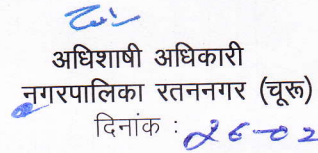 अधिशाषी अधिकारी
नगरपालिका रतननगर (चूरू)
दिनांक : 26-02